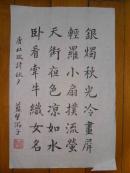 銀燭秋光冷畫屏
輕羅小扇撲流螢
天街夜色涼如水
臥看牽牛織女星
唐杜牧詩秋夕